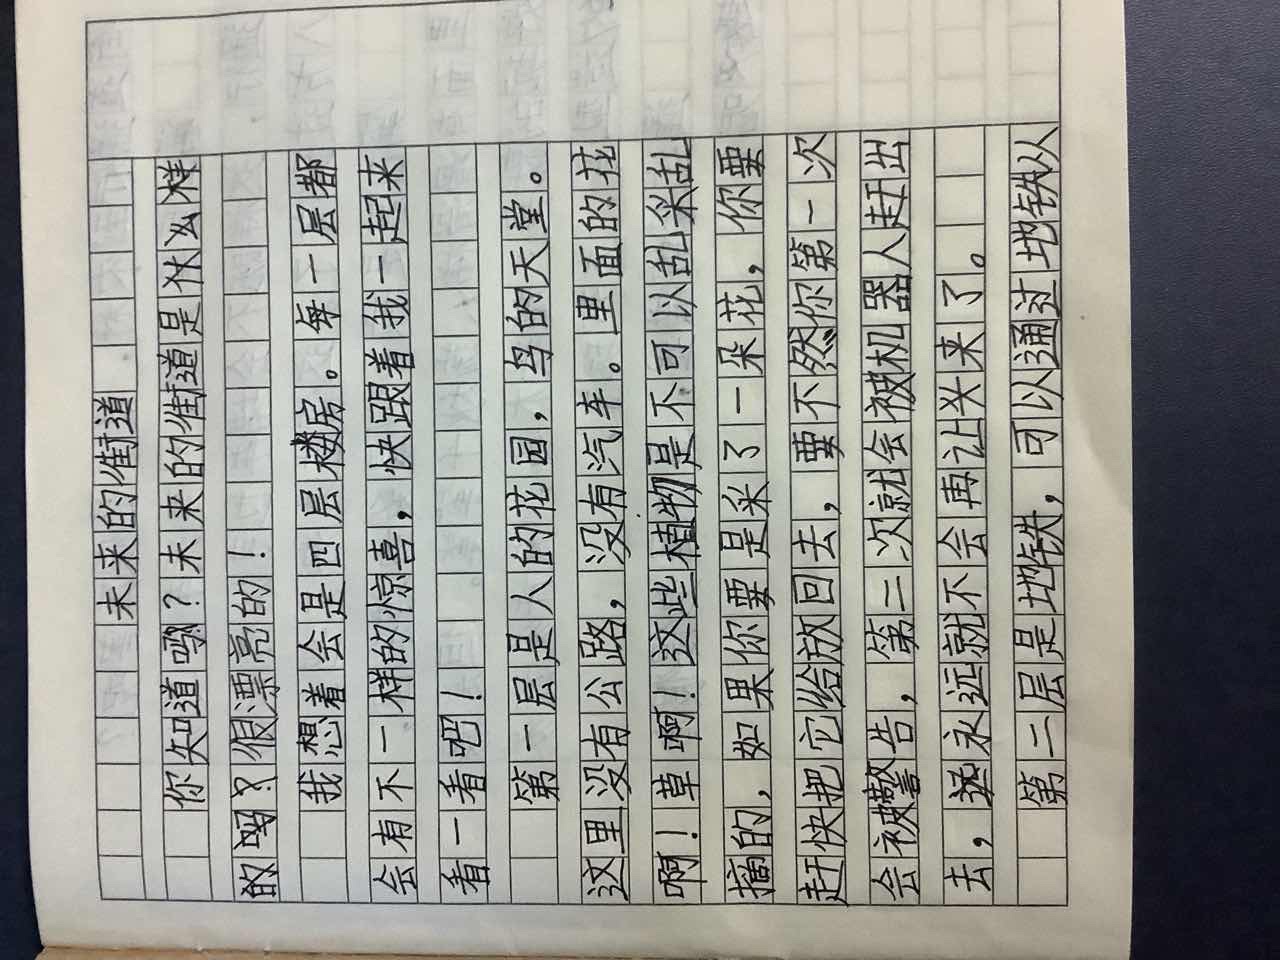 未来的街道
你知道吗？未来的街道是什么样
的吗？很漂亮的！
我想着会是四层楼房。每一层都
会有不一样的惊喜，快跟着我一起来
看一看吧！
第一层是人的花园，鸟的天堂。
这里没有公路，没有汽车。里面的花
啊！草啊！这些植物是不可以乱采乱
摘的，如果你要是采了一朵花，你要
赶快把它给放回去，要不然你第一次
会被警告，第二次就会被机器人赶出
去，永远就不会再让进来了。
第二层是地铁，可以通过地铁从